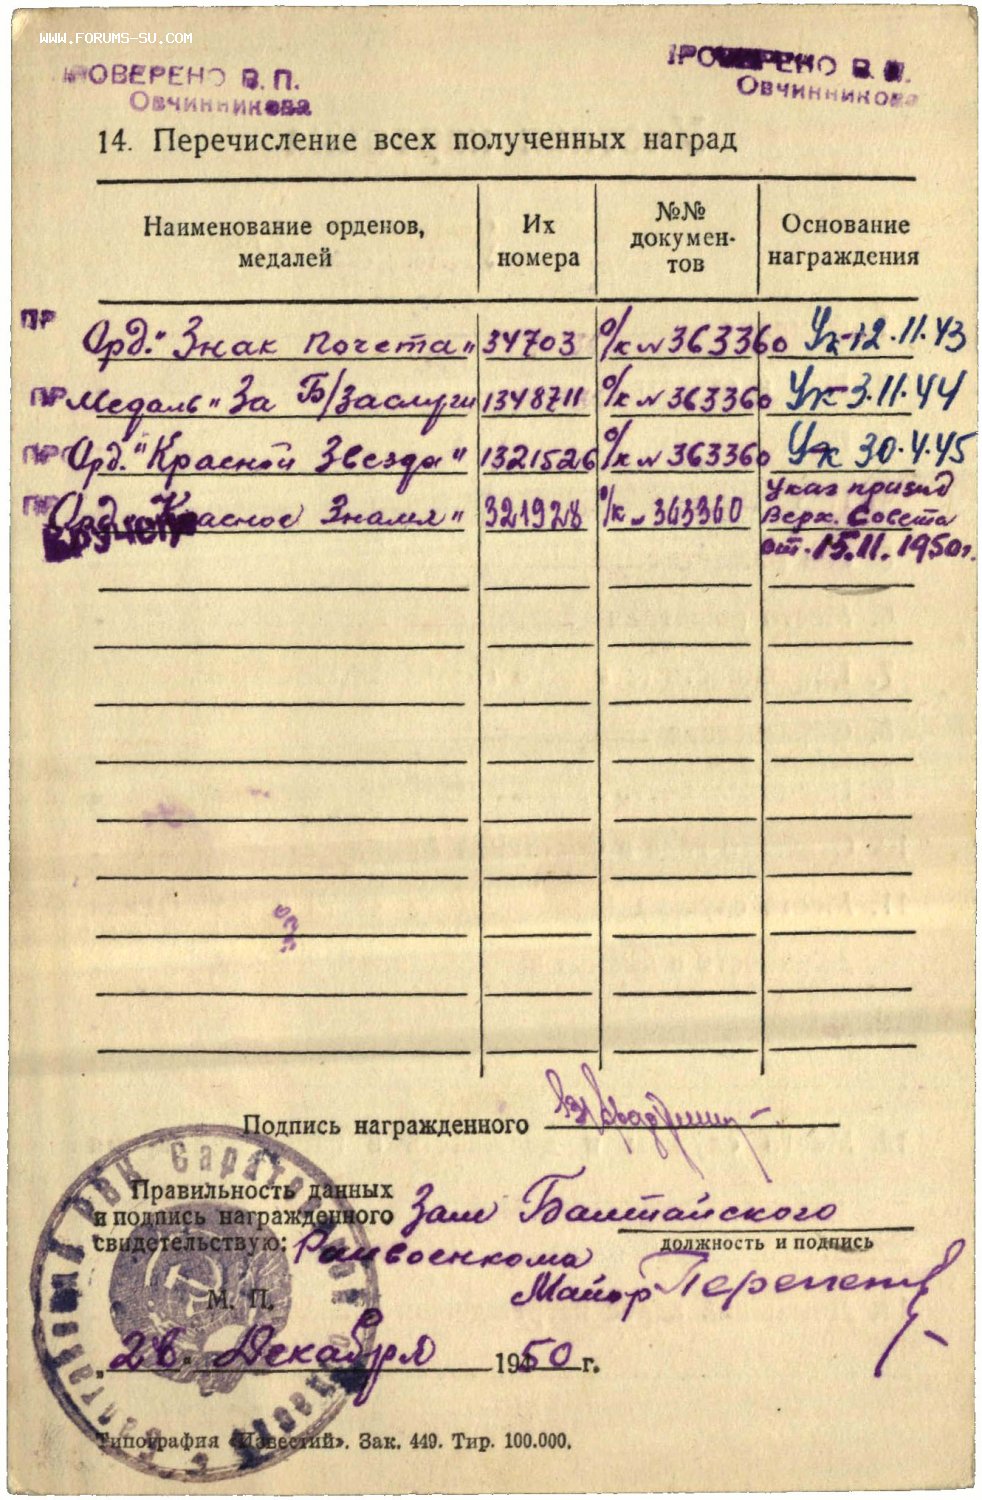 WWW.FORUMS-SU.COM
ПРОВЕРЕНО В. П.
Овчинникова
ПРОВЕРЕНО В. П.
Овчинникова
14. Перечисление всех полученных наград
Наименование орденов, медалей | Их номера | №№ докумен-тов | Основание награждения
ПР Орд. "Знак Почета" 34703 о/к № 363360 Ук-12.11.43
ПР Медаль "За Б/Заслуги 1348711 о/к № 363360 Ук 3.11.44
ПР Орд. "Красной Звезда" 1321526 о/к № 363360 Ук 30.4.45
ПР Орд. "Красное Знамя" 321928 о/к № 363360 Указ презид
Верх. Совета
от 15.11.1950г.
Вручен
Подпись награжденного
Правильность данных
и подпись награжденного Зам Балтайского
свидетельствую: Райвоенкома
должность и подпись
Майор
М. П.
„28" Декабря 1950 г.
Типография «Известий». Зак. 449. Тир. 100.000.